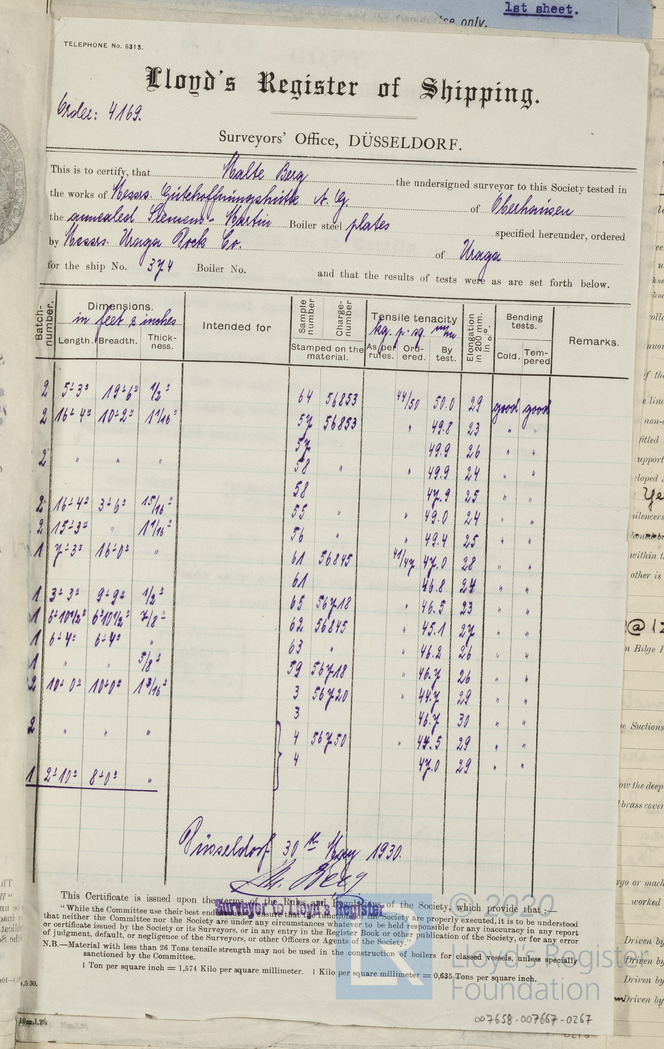 1st sheet.
ce only.
TELEPHONE No. 6313.
Lloyd's Register of Shipping.
Order: 4169.
Surveyors' Office, DÜSSELDORF.
This is to certify, that Malte Berg the undersigned surveyor to this Society tested in
the works of Messrs. Gutehoffnungshütte A.G. of Oberhausen
the annealed Siemens-Martin Boiler steel plates specified hereunder, ordered
by Messrs. Uraga Dock Co. of Uraga
for the ship No. 374 Boiler No. and that the results of tests were as are set forth below.
Batch-number. Dimensions. in feet & inches Length. Breadth. Thick-ness. Intended for Sample number Charge-number Stamped on the material. Tensile tenacity kg. p. sq. mm As per rules. Ordered. By test. Elongation in 200 mm. in % Bending tests. Cold. Tempered Remarks.
2 5'-3" 19'-6" 1/2" 64 56853 44/50 50.0 29 good good
2 16'-4" 10'-2" 11/16" 57 56853 " 49.8 23 " "
57 49.9 26 " "
2 " " " 58 " 49.9 24 " "
58 47.9 25 " "
2 16'-4" 3'-6" 15/16" 55 " 49.0 24 " "
2 15'-3" " 11/16" 56 " 49.4 25 " "
1 7'-3" 16'-0" " 61 56845 41/47 47.0 28 " "
61 46.8 24 " "
1 3'-3" 9'-9" 1/2" 65 56718 " 46.5 23 " "
1 6'-10 1/2" 6'-10 1/2" 7/8" 62 56845 " 45.1 27 " "
1 6'-4" 6'-4" " 63 " " 46.2 26 " "
1 " " 5/8" 59 56718 " 46.7 26 " "
2 10'-0" 10'-0" 1 3/16" 3 56720 " 44.7 29 " "
3 46.7 30 " "
2 " " " 4 56750 " 44.5 29 " "
4 47.0 29 " "
1 2'-10" 8'-0" "
Düsseldorf 30th May 1930.
M. Berg
Surveyor to Lloyd's Register
This Certificate is issued upon the terms of the Rules and Regulations of the Society, which provide that :—
"While the Committee use their best endeavours to ensure that the functions of the Society are properly executed, it is to be understood
that neither the Committee nor the Society are under any circumstances whatever to be held responsible for any inaccuracy in any report
or certificate issued by the Society or its Surveyors, or in any entry in the Register Book or other publication of the Society, or for any error
of judgment, default, or negligence of the Surveyors, or other Officers or Agents of the Society."
N.B.—Material with less than 26 Tons tensile strength may not be used in the construction of boilers for classed vessels, unless specially
sanctioned by the Committee.
1 Ton per square inch = 1,574 Kilo per square millimetre. 1 Kilo per square millimetre = 0,635 Tons per square inch.
© 2020
LR
Lloyd's Register
Foundation
007658-007667-0267